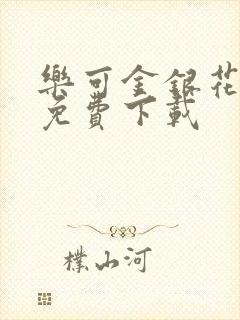 樂可金銀花
免費下載
樸山河